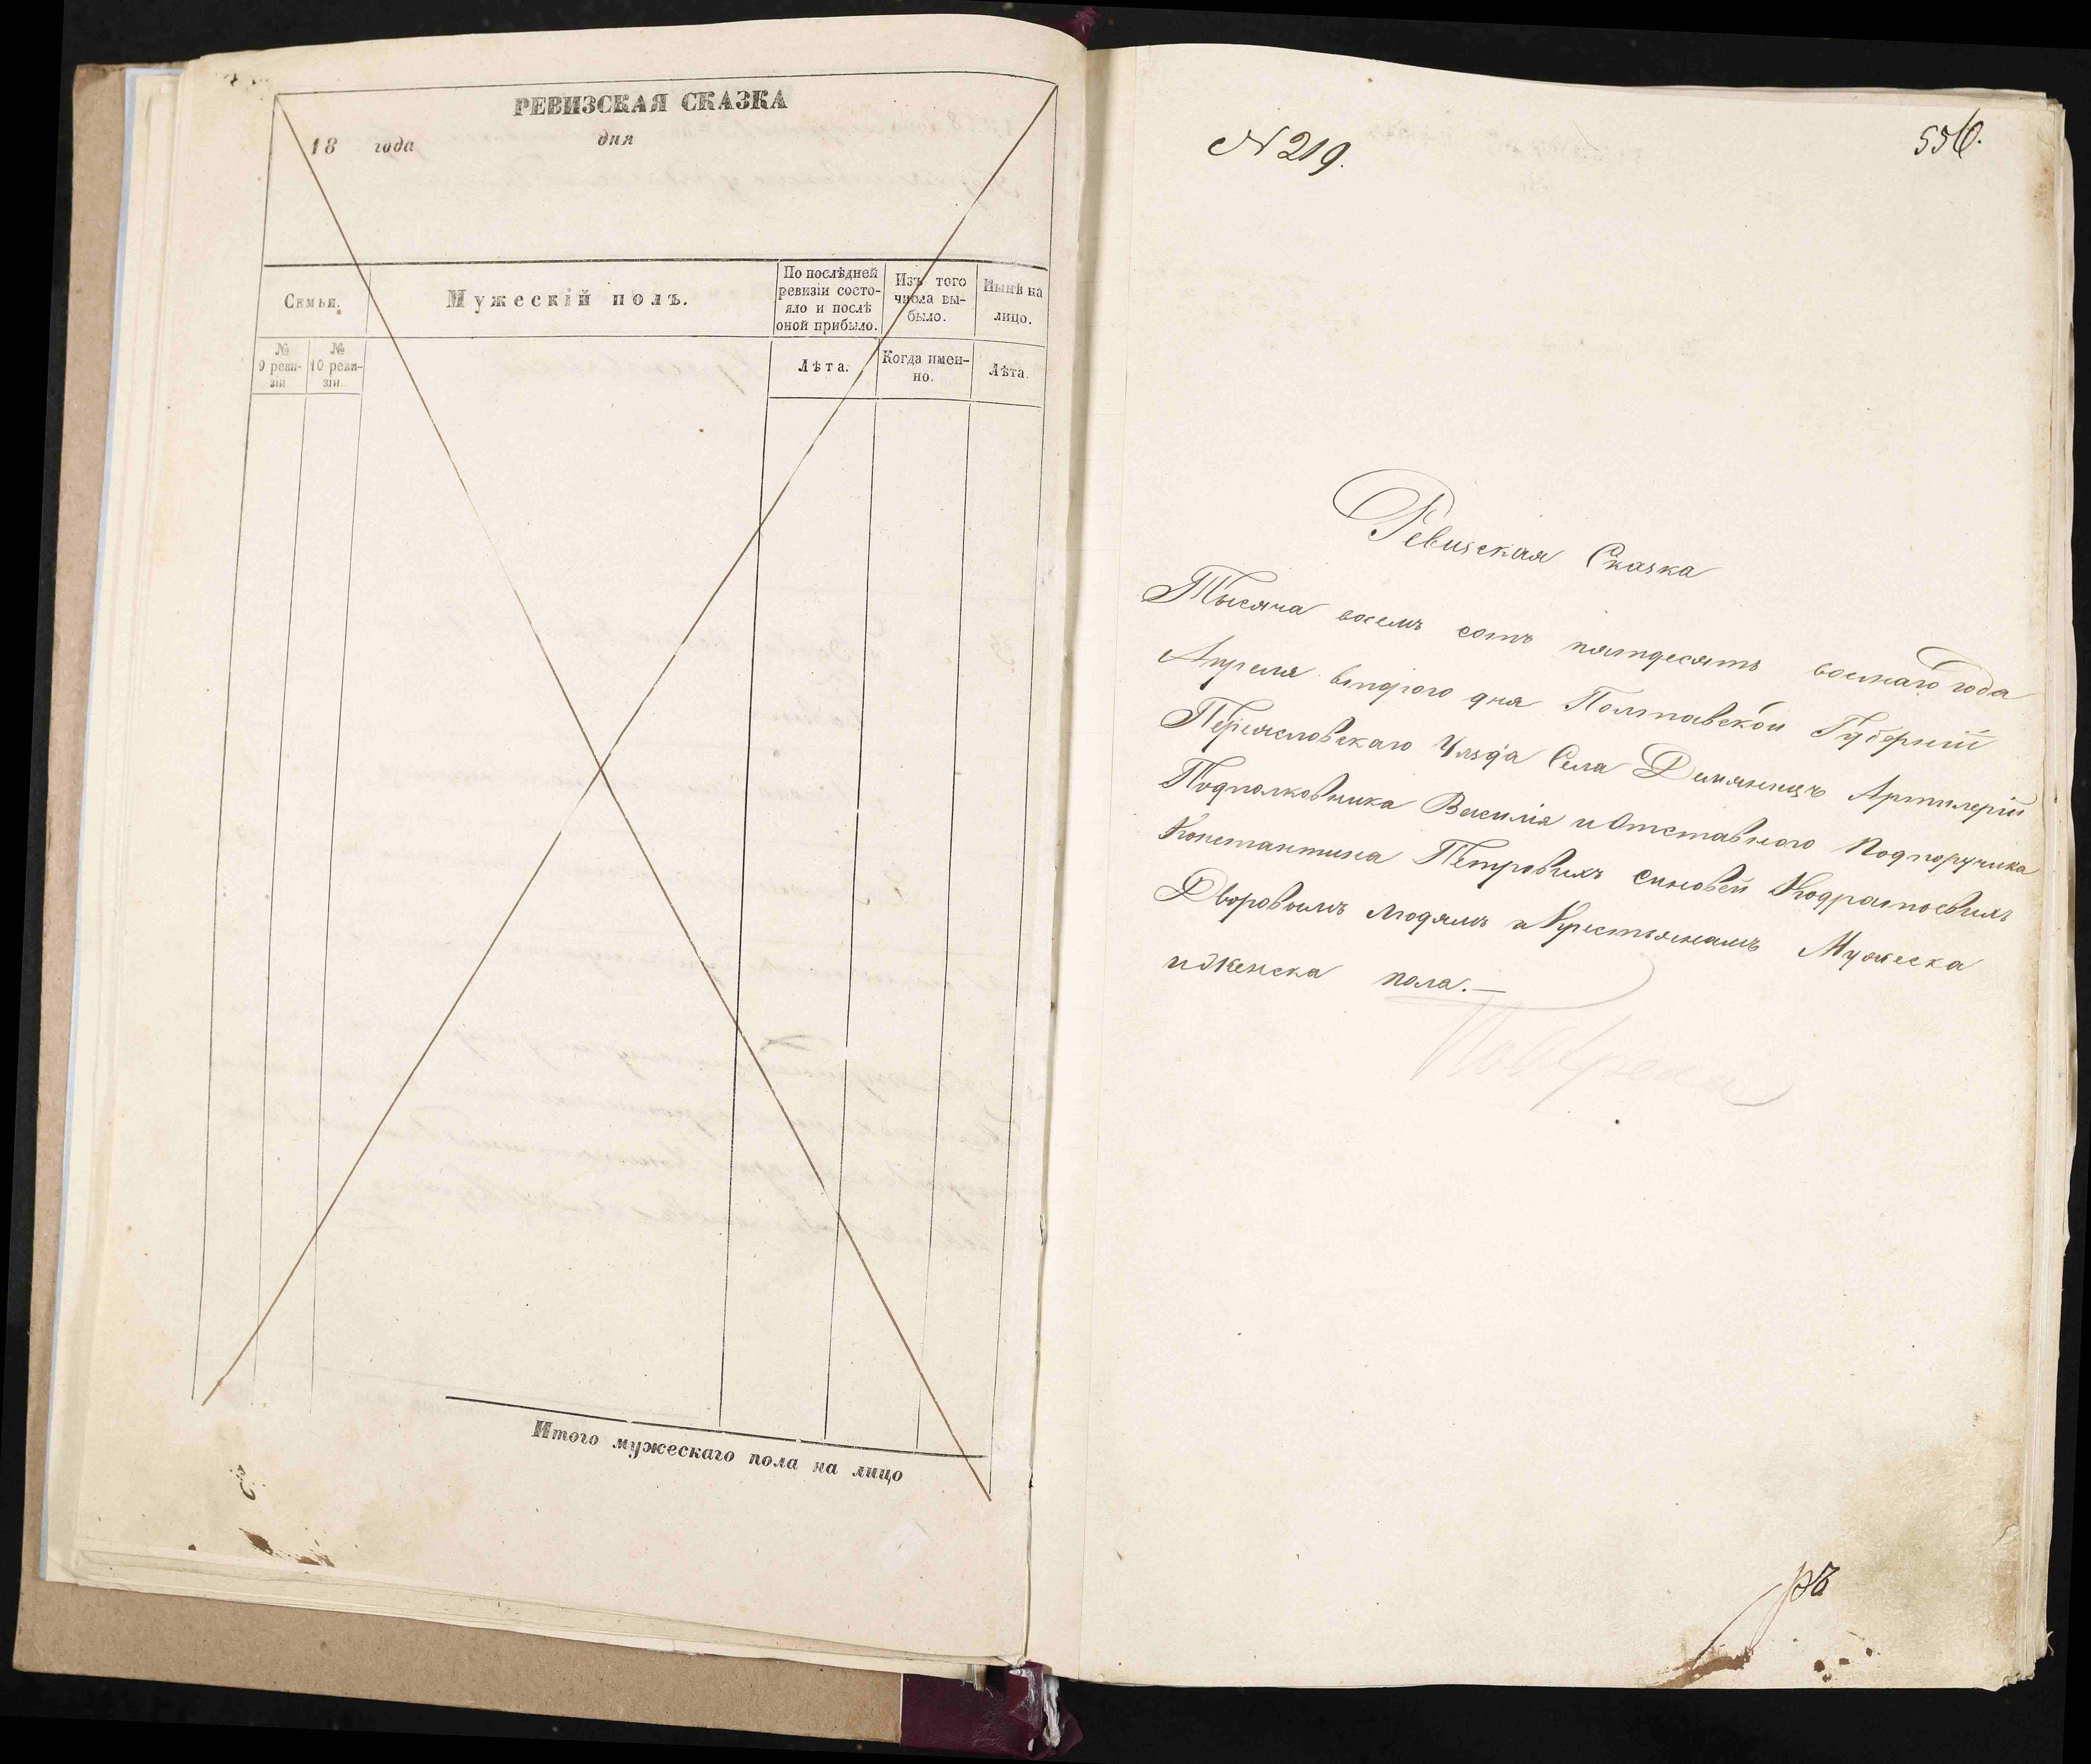 РЕВИЗСКАЯ СКАЗКА
18 года дня
Семьи.
Мужескій полъ.
По послѣдней
ревизіи состо-
яло и послѣ
оной прибыло.
Изъ того
числа вы-
было.
Нынѣ на
лицо.
№
9 реви-
зіи.
№
10 реви-
зіи.
Лѣта.
Когда имен-
но.
Лѣта.
Итого мужескаго пола на лицо
№ 219.
556.
Ревизская Сказка
Тысяча восемъ сотъ пятдесятъ восмаго года
Апреля втораго дня Полтавской Губерніи
Переясловскаго Уязда Села Демянецъ Артилеріи
Подполковника Василія и Отставного Подпоручика
Константина Петровихъ синовей Кодратовихъ
Дворовымъ людямъ и Крестьянамъ Мужеска
и Женска пола.—